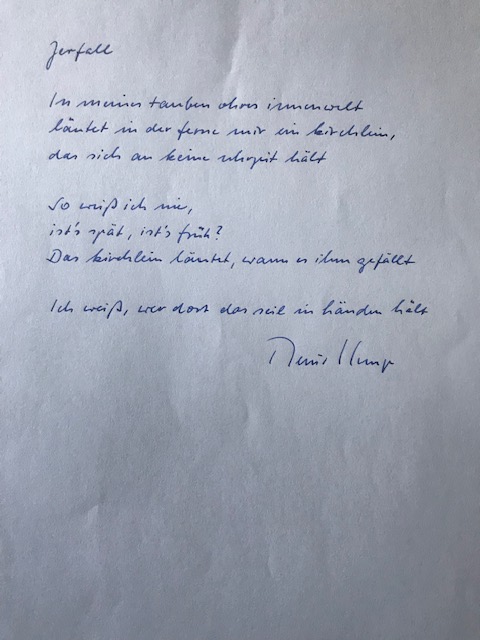 Zerfall
In meines tauben ohres innenwelt
läutet in der ferne mir ein kirchlein,
das sich an keine uhrzeit hält
So weiß ich nie,
ist's spät, ist's früh?
Das kirchlein läutet, wann es ihm gefällt
Ich weiß, wer dort das seil in händen hält